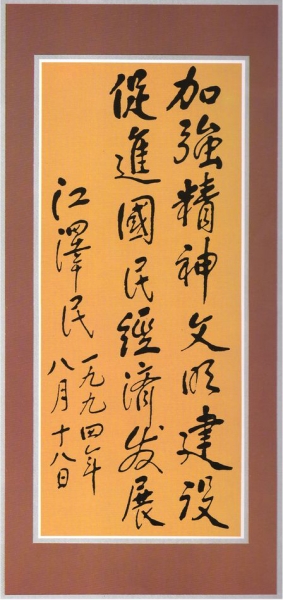 加強精神文明建设
促進國民經济发展
江澤民
一九九四年
八月十八日